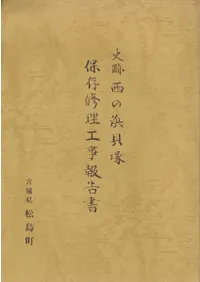 史跡西の浜貝塚
保存修理工事報告書
宮城県 松島町